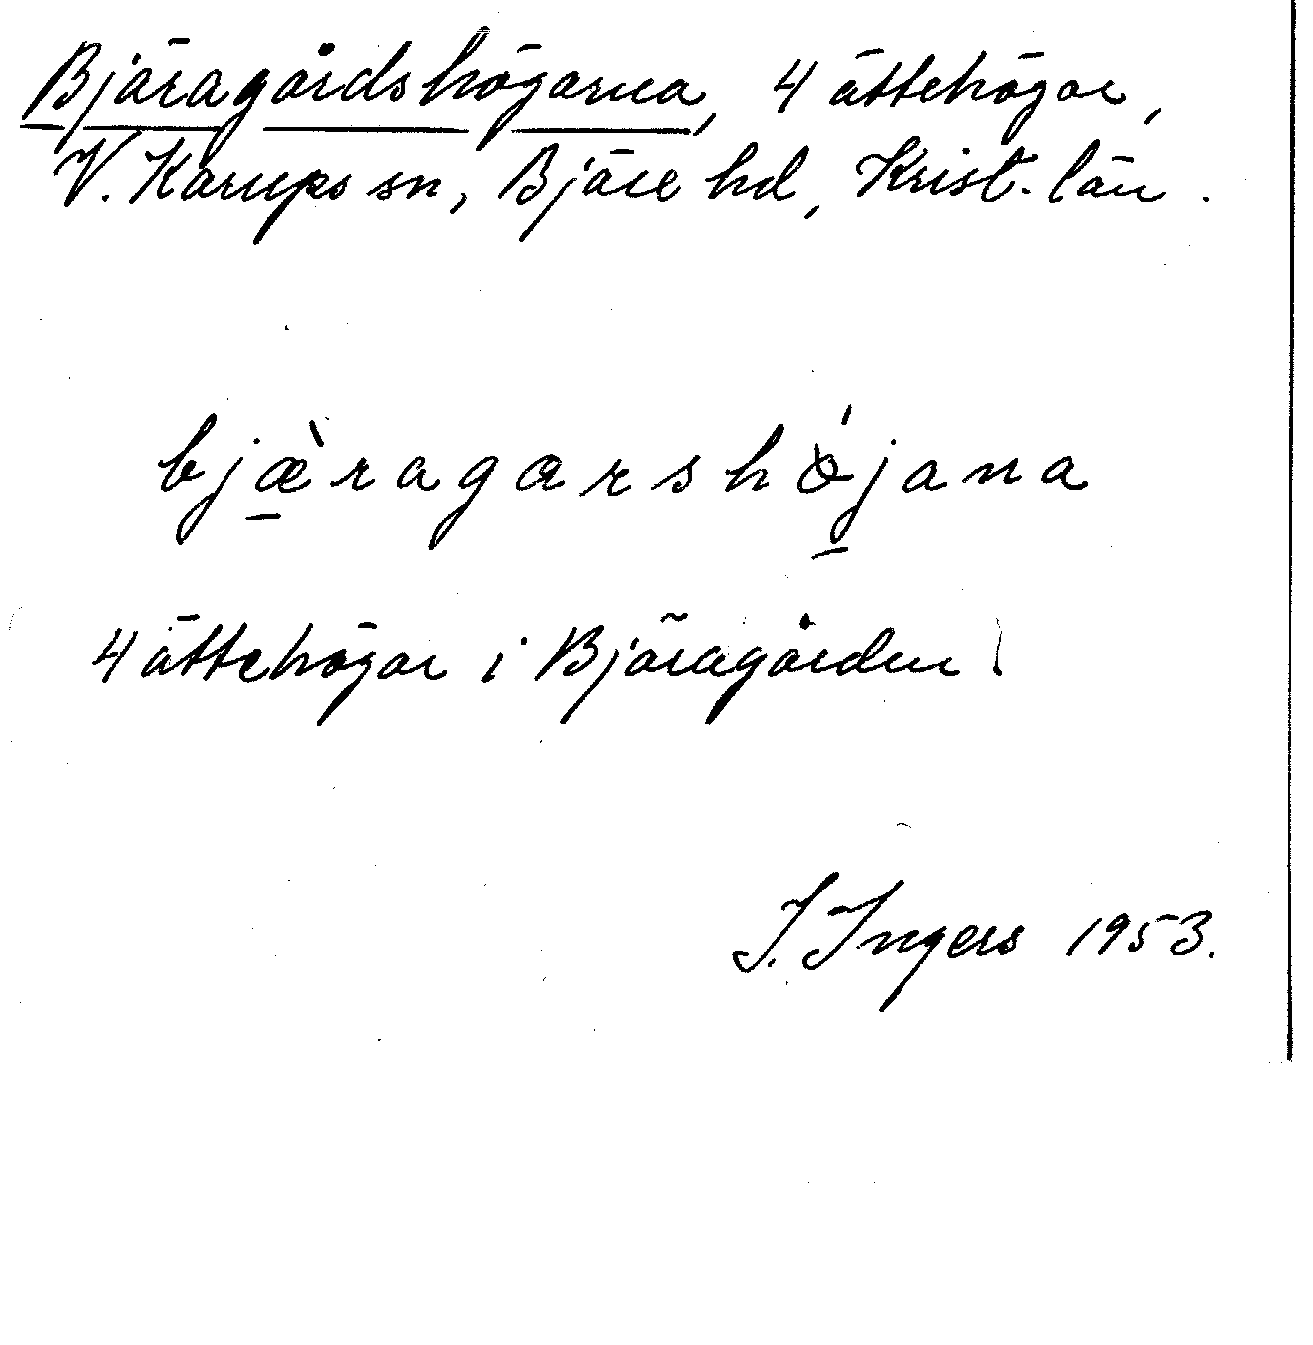 Bjäragårdshögarna, 4 ättehögar,
V. Karups sn, Bjäre hd, Krist. län.
bjæ̱̀ragarshǿ̱jana
4 ättehögar i Bjäragården.
I. Ingers 1953.